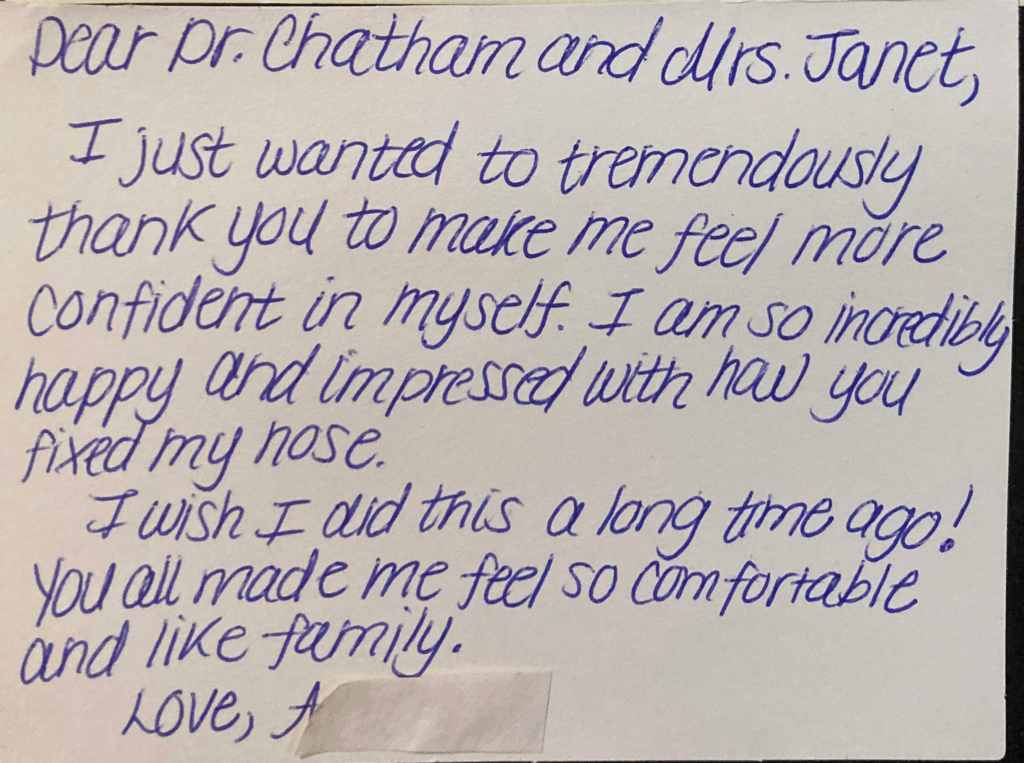 Dear Dr. Chatham and Mrs. Janet,
I just wanted to tremendously
thank you to make me feel more
confident in myself. I am so incredibly
happy and impressed with how you
fixed my nose.
I wish I did this a long time ago!
You all made me feel so comfortable
and like family.
Love, A